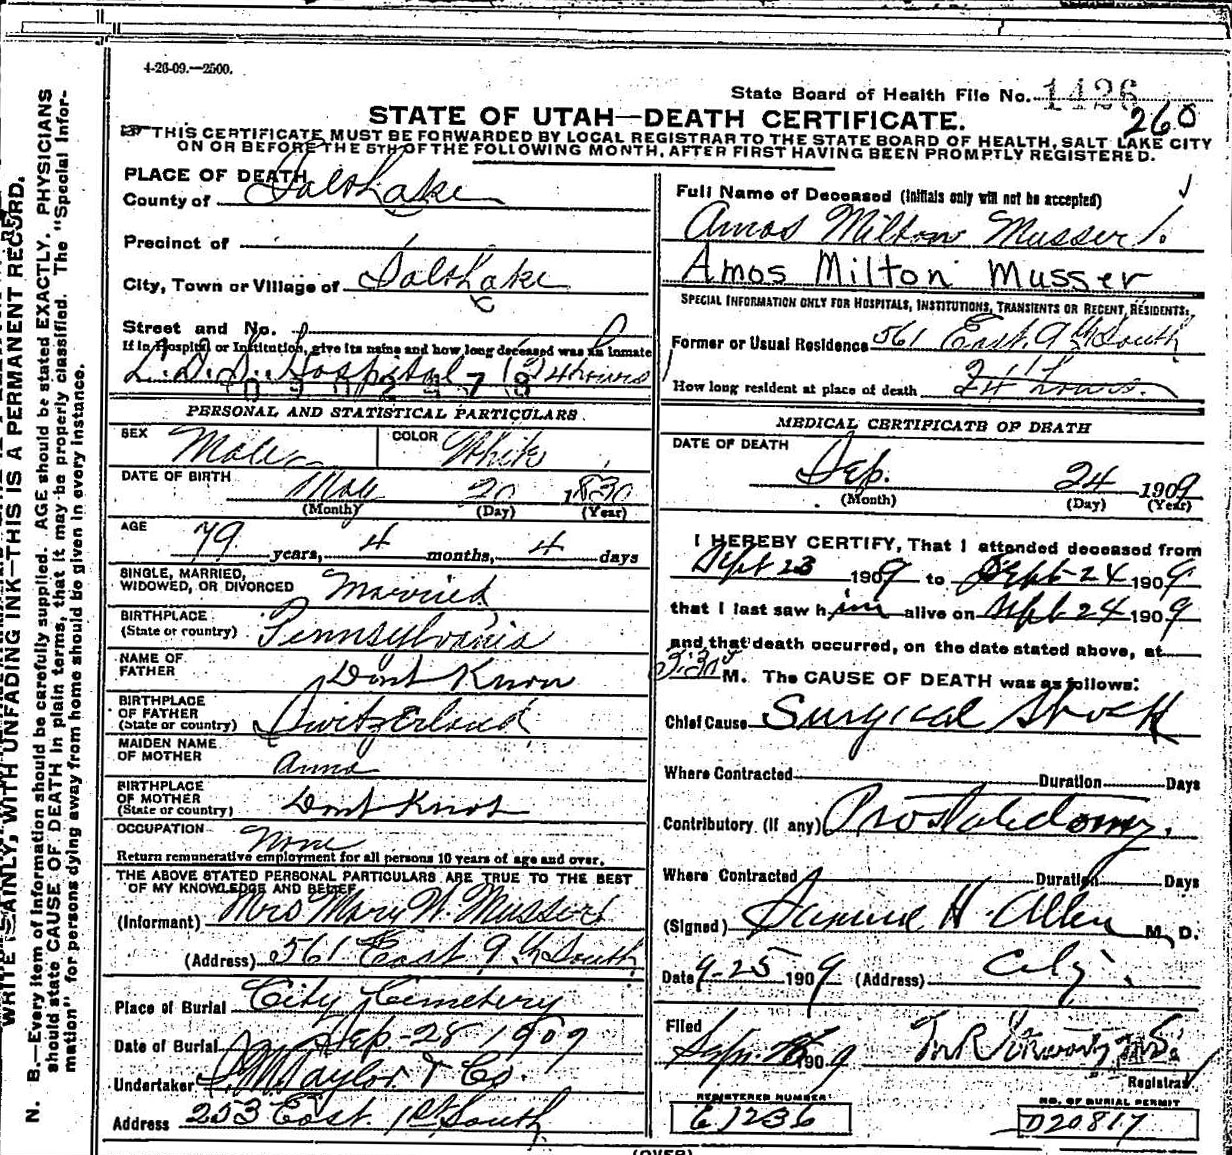 4-26-09.—2500.
State Board of Health File No. 1426
260
STATE OF UTAH—DEATH CERTIFICATE.
THIS CERTIFICATE MUST BE FORWARDED BY LOCAL REGISTRAR TO THE STATE BOARD OF HEALTH, SALT LAKE CITY
ON OR BEFORE THE 5TH OF THE FOLLOWING MONTH, AFTER FIRST HAVING BEEN PROMPTLY REGISTERED.
PLACE OF DEATH
County of Salt Lake
Precinct of
City, Town or Village of Salt Lake
Street and No.
If in Hospital or Institution, give its name and how long deceased was an inmate
L.D.S. Hospital (24 hours
PERSONAL AND STATISTICAL PARTICULARS.
SEX Male COLOR White
DATE OF BIRTH May 20 1830
(Month) (Day) (Year)
AGE 79 years, 4 months, 4 days
SINGLE, MARRIED,
WIDOWED, OR DIVORCED Married
BIRTHPLACE
(State or country) Pennsylvania
NAME OF
FATHER Dont Know
BIRTHPLACE
OF FATHER
(State or country) Switzerland
MAIDEN NAME
OF MOTHER Anna
BIRTHPLACE
OF MOTHER
(State or country) Dont Know
OCCUPATION None
Return remunerative employment for all persons 10 years of age and over.
THE ABOVE STATED PERSONAL PARTICULARS ARE TRUE TO THE BEST
OF MY KNOWLEDGE AND BELIEF
(Informant) Mrs Mary W. Musser
(Address) 561 East 9th South
Place of Burial City Cemetery
Date of Burial Sep-28 1909
Undertaker S. M. Taylor & Co.
Address 253 East 1st South
Full Name of Deceased (Initials only will not be accepted)
Amos Milton Musser
Amos Milton Musser
SPECIAL INFORMATION ONLY FOR HOSPITALS, INSTITUTIONS, TRANSIENTS OR RECENT, RESIDENTS.
Former or Usual Residence 561 East 9th South
How long resident at place of death 24 hours.
MEDICAL CERTIFICATE OF DEATH
DATE OF DEATH
Sep. 24 1909
(Month) (Day) (Year)
I HEREBY CERTIFY, That I attended deceased from
Sept 23 1909 to Sept 24 1909
that I last saw him alive on Sept 24 1909
and that death occurred, on the date stated above, at
M. The CAUSE OF DEATH was as follows:
Chief Cause Surgical Shock
Where Contracted Duration Days
Contributory (if any) Prostatectomy.
Where Contracted Duration Days
(Signed) Samuel H. Allen M. D.
Date 9-25 1909 (Address) City.
Filed
1909
Registrar
REGISTERED NUMBER
C1236
NO. OF BURIAL PERMIT
D20817
(OVER)
N. B.—Every item of information should be carefully supplied. AGE should be stated EXACTLY. PHYSICIANS
should state CAUSE OF DEATH in plain terms, that it may be properly classified. The "Special Infor-
mation" for persons dying away from home should be given in every instance.
WRITE PLAINLY, WITH UNFADING INK—THIS IS A PERMANENT RECORD.